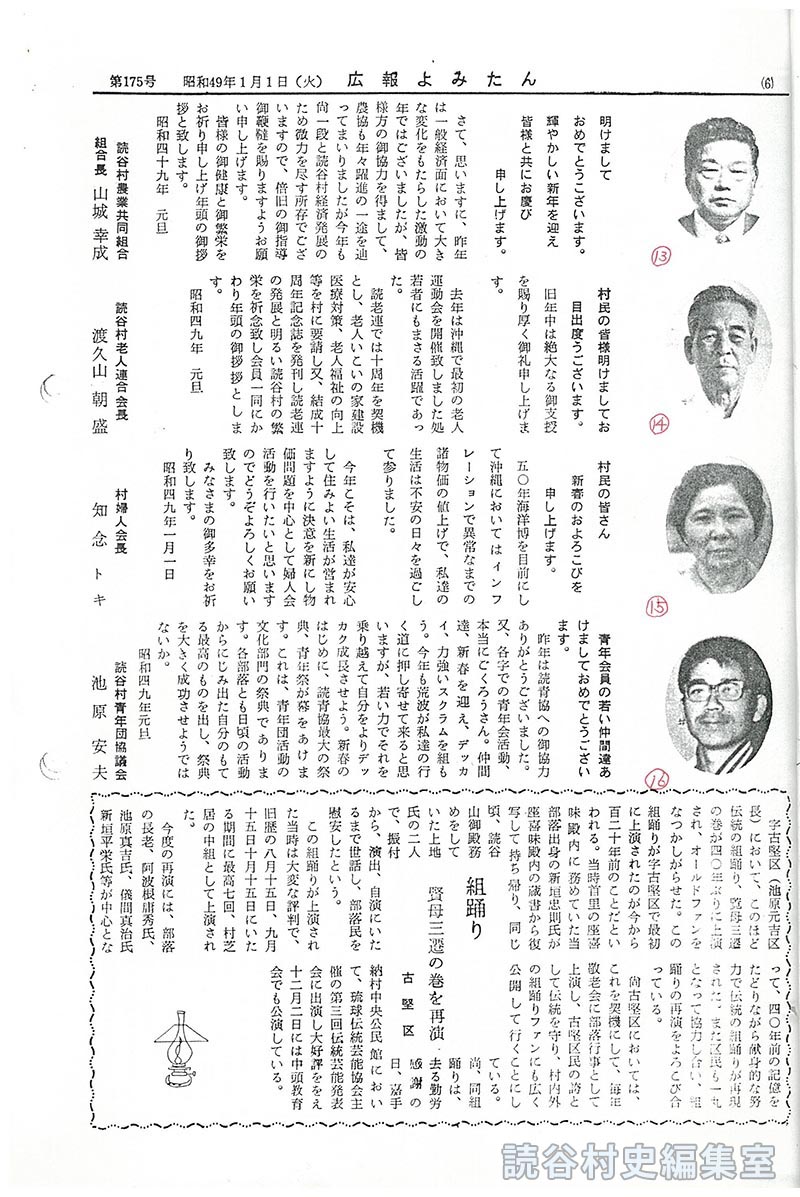 第175号　昭和49年1月1日（火）　広報よみたん　(6)
明けまして
おめでとうございます。
輝やかしい新年を迎え
皆様と共にお慶び
申し上げます。
さて、思いますに、昨年
は一般経済面において大き
な変化をもたらした激動の
年ではございましたが、皆
様方の御協力を得まして、
農協も年々躍進の一途を辿
ってまいりましたが今年も
尚一段と読谷村経済発展の
ため微力を尽す所存でござ
いますので、倍旧の御指導
御鞭撻を賜りますようお願
い申し上げます。
皆様の御健康と御繁栄を
お祈り申し上げ年頭の御挨
拶と致します。
昭和四十九年　元旦
読谷村農業共同組合
組合長　山城幸成
⑬
村民の皆様明けましてお
目出度うございます。
旧年中は絶大なる御支授
を賜り厚く御礼申し上げま
す。
去年は沖縄で最初の老人
運動会を開催致しました処
若者にもまさる活躍であっ
た。
読老連では十周年を契機
とし、老人いこいの家建設
医療対策、老人福祉の向上
等を村に要請し又、結成十
周年記念誌を発刊し読老連
の発展と明るい読谷村の繁
栄を祈念致し会員一同にか
わり年頭の御挨拶としま
す。
昭和四九年　元旦
読谷村老人連合会長
渡久山朝盛
⑭
村民の皆さん
新春のおよろこびを
申し上げます。
五〇年海洋博を目前にし
て沖縄においてはインフ
レーションで異常なまでの
諸物価の値上げで、私達の
生活は不安の日々を過ごし
て参りました。
今年こそは、私達が安心
して住みよい生活が営まれ
ますように決意を新にし物
価問題を中心として婦人会
活動を行いたいと思います
のでどうぞよろしくお願い
致します。
みなさまの御多幸をお祈
り致します。
昭和四九年一月一日
村婦人会長
知念トキ
⑮
青年会員の若い仲間達あ
けましておめでとうござい
ます。
昨年は読青協への御協力
ありがとうございました。
又、各字での青年会活動、
本当にごくろうさん。仲間
達、新春を迎え、デッカ
イ、力強いスクラムを組も
う。今年も荒波が私達の行
く道に押し寄せて来ると思
いますが、若い力でそれを
乗り越えて自分をよりデッ
カク成長させよう。新春の
はじめに、読青協最大の祭
典、青年祭が幕をあけま
す。これは、青年団活動の
文化部門の祭典でありま
す。各部落とも日頃の活動
からにじみ出た自分のもて
る最高のものを出し、祭典
を大きく成功させようでは
ないか。
昭和四九年元旦
読谷村青年団協議会
池原安夫
⑯
組踊り
賢母三遷の巻を再演
古堅区
字古堅区（池原元吉区
長）において、このほど
伝統の組踊り、賢母三遷
の巻が四〇年ぶりに上演
され、オールドファンを
なつかしがらせた。この
組踊りが字古堅区で最初
に上演されたのが今から
百二十年前のことだとい
われる。当時首里の座喜
味殿内に務めていた当
部落出身の新垣忠則氏が
座喜味殿内の蔵書から復
写して持ち帰り、同じ
頃、読谷
山御殿務
めをして
いた上地
氏の二人
で、振付
から、演出、自演にいた
るまで世話し、部落民を
慰安したという。
この組踊りが上演され
た当時は大変な評判で、
旧歴の八月十五日、九月
十五日十月十五日にいた
る期間に最高七回、村芝
居の中組として上演され
た。
今度の再演には、部落
の長老、阿波根庸秀氏、
池原真吉氏、儀間真治氏
新垣平栄氏等が中心とな
って、四〇年前の記憶を
たどりながら献身的な労
力で伝統の組踊りが再現
された。また区民も一丸
となって協力し合い、組
踊りの再演をよろこび合
っている。
尚古堅区においては、
これを契機にして、毎年
敬老会に部落行事として
上演し、古堅区民の誇と
して伝統を守り、村内外
の組踊りファンにも広く
公開して行くことにし
ている。
尚、同組
踊りは、
去る勤労
感謝の
日、嘉手
納村中央公民館におい
て、琉球伝統芸能協会主
催の第三回伝統芸能発表
会に出演し大好評をえ
十二月二日には中頭教育
会でも公演している。
読谷村史編集室